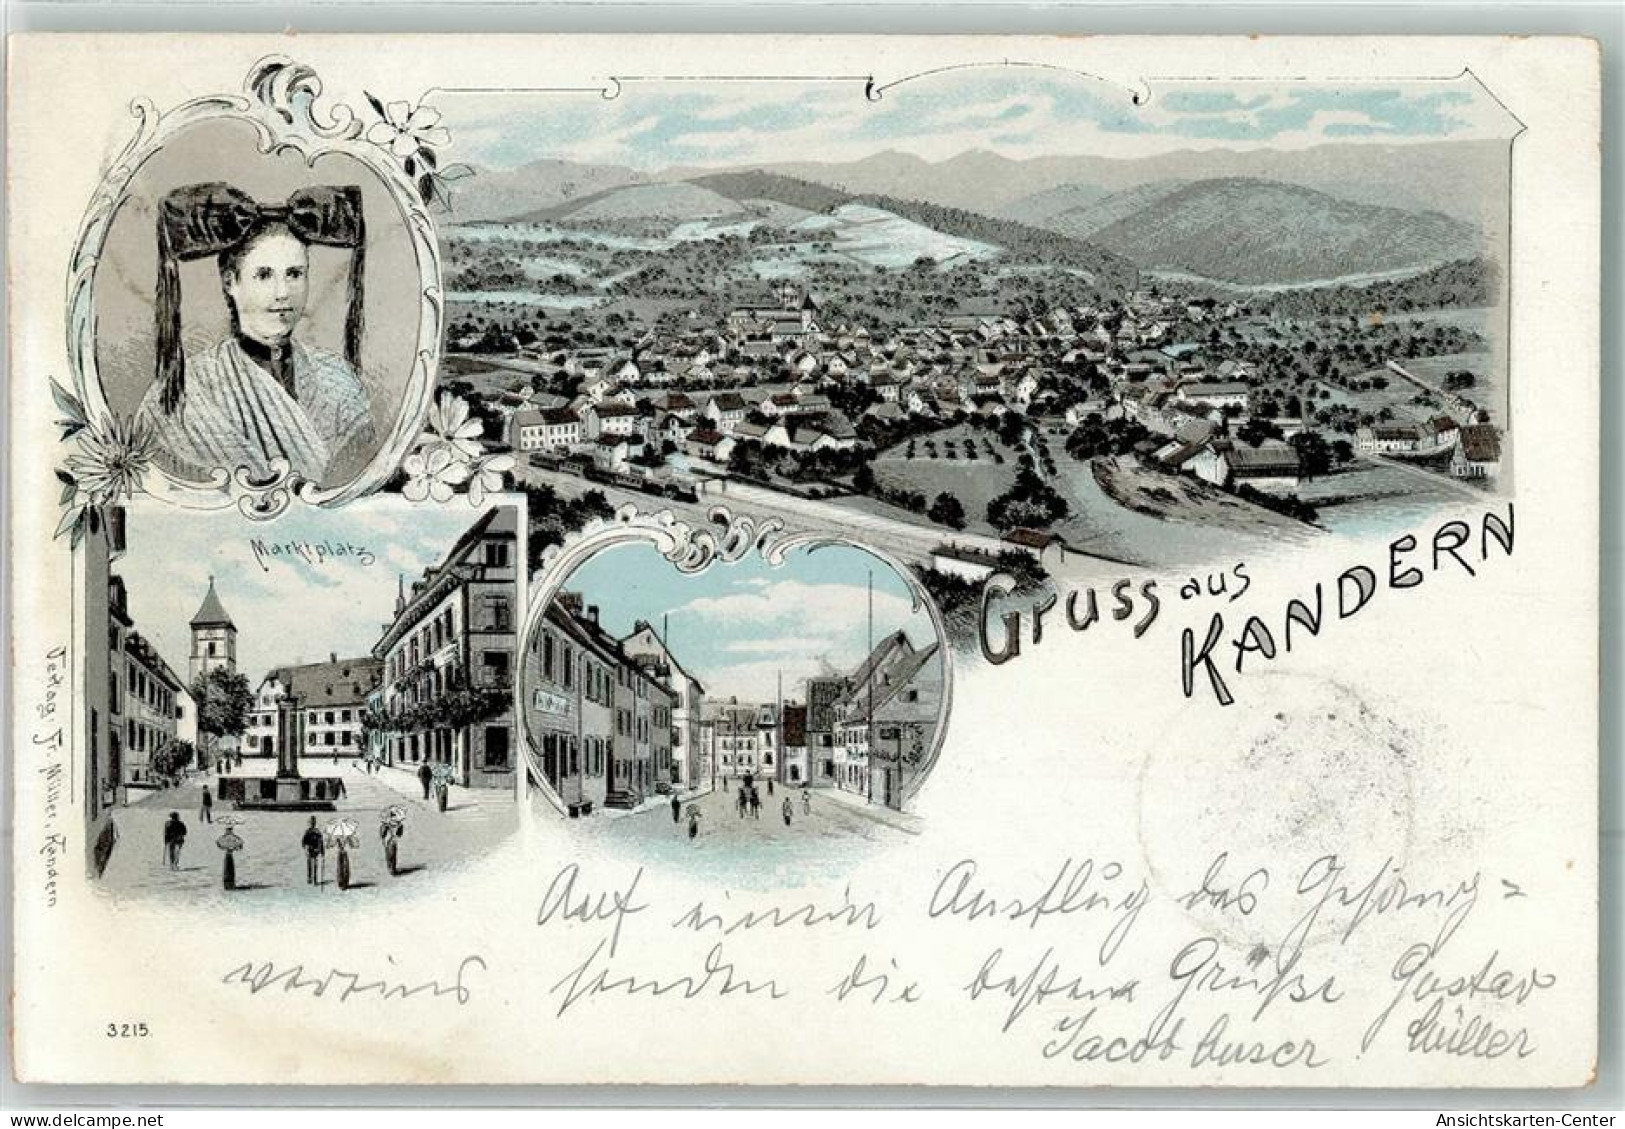 Marktplatz
Gruss aus
KANDERN
Verlag, Fr. Müller, Kandern
Auf einem Ausflug des Gesang=
vereins senden die besten Grüße Gustav
Jacob Müller
3215.
Ansichtskarten-Center